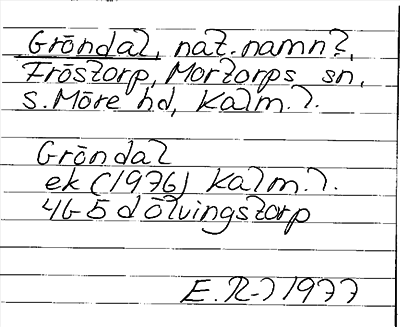 Gröndal, nat.namn?,
Fröstorp, Mortorps sn,
S. Möre hd, Kalm. l.
Gröndal
ek (1976) Kalm. l.
4G 5 d Ölvingstorp
E. R-l 1977